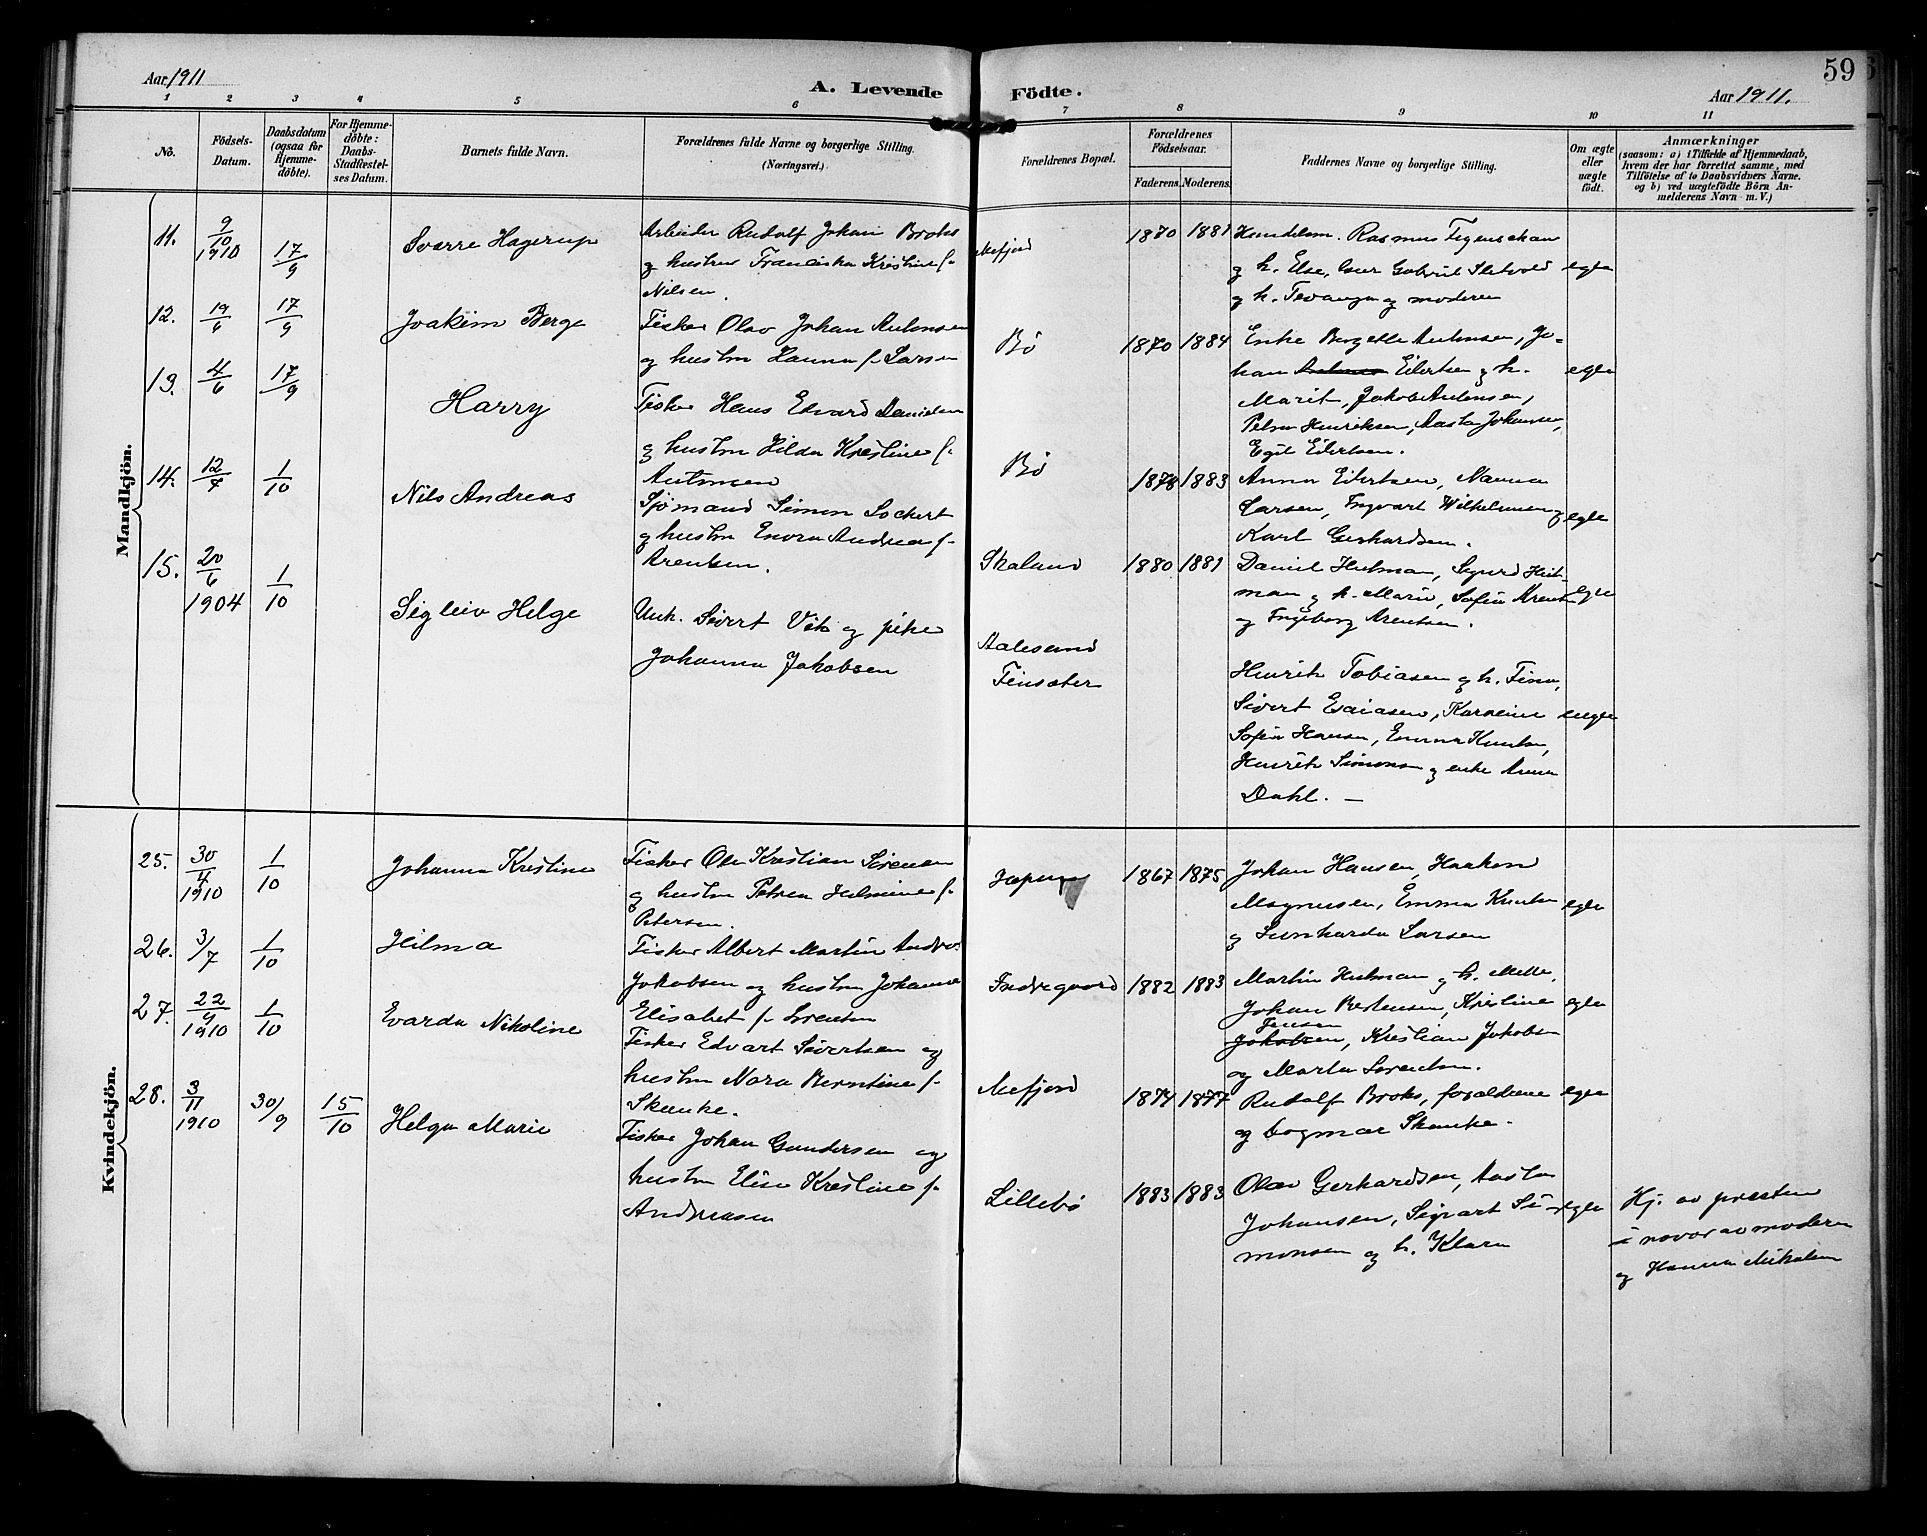 59
Aar 1911
A. Levende Födte.
Aar 1911.
1 2 3 4 5 6 7 8 9 10 11
No.
Födsels-Datum.
Daabsdatum (ogsaa for Hjemme-döbte).
For Hjemme-döbte: Daabs-Stadfæstel-ses Datum.
Barnets fulde Navn.
Forældrenes fulde Navne og borgerlige Stilling.
(Næringsvei.)
Forældrenes Bopæl.
Forældrenes Födselsaar.
Faderens. Moderens.
Faddernes Navne og borgerlige Stilling.
Om ægte eller uægte födt.
Anmærkninger
(saasom: a) i Tilfælde af Hjemmedaab,
hvem der har forrettet samme, med
Tilföielse af to Daabsvidners Navne.
og b) ved uægtefödte Börn An-
melderens Navn m. V.)
Mandkjön.
11. 9/10 1910 17/9 Sverre Hagerup
Arbeider Rudolf Johan Broks
og hustru Franciska Kristine f.
Nilsen.
Mefjord 1870 1881
Rasmus
og h. Else, Gabriel
og h. og moderen
egte
12. 19/6 17/9 Joakim Berge
Fisker Olav Johan Antonsen
og hustru Hanna f. Larsen
Bö 1870 1884
Enke Bergette Antonsen, Jo-
han Eilertsen og h.
Marit, Jakob Antonsen,
Petra Henriksen, Aasta Johansen,
Egil Eilertsen.
egte
13. 4/6 17/9 Harry
Fisker Hans Edvard Danielsen
og hustru Hilda Kristine f.
Antonsen
Bö 1878 1883
Anna Eilertsen, Nanna
Larsen, Ingvart Wilhelmsen og
Karl Gerhardsen.
egte
14. 12/7 1/10 Nils Andreas
Sjömand Simon Lockert
og hustru Enora Andrea f.
Arentsen.
Skaland 1880 1881
Daniel Hutman, Sigurd Hut-
man og h. Marie, Sofie Arentsen
og Ingeborg Arentsen.
egte
15. 20/6 1904 1/10 Sigleiv Helge
Unk. Sivert Vik og pike
Johanna Jakobsen
Aalesund
Finsæter
Henrik Tobiasen og h. Fina,
Sivert Esaiasen, Karoline
Sofie Hansen, Emma Knutsen,
Henrik Simonsen og enke Anna
Dahl. —
uegte
Kvindekjön.
25. 30/4 1910 1/10 Johanna Kristine
Fisker Ole Kristian Sörensen
og hustru Petrea Helmine f.
Petersen.
1867 1875
Johan Hansen, Haakon
Magnussen, Emma Knutsen
og Leonharda Larsen
egte
26. 3/7 1/10 Hilma
Fisker Albert Martin Andr.
Jakobsen og hustru Johanna
Elisabet f. Lorentsen
Indregaard 1882 1883
Martin Hutman og h. Mette,
Johan Berntsen, Kristine
Jensen
Jakobsen, Kristian Jakobsen
og Marta Lorentsen.
egte
27. 22/9 1910 1/10 Evarda Nikoline
Fisker Edvart Sivertsen og
hustru Nora Berntine f.
Skanke.
Mefjord 1874 1877
Rudolf Broks, forældrene
og Dagmar Skanke.
egte
28. 3/11 1910 30/9 15/10 Helga Marie
Fisker Johan Gundersen og
hustru Elise Kristine f.
Andreasen
Lillebö 1883 1883
Olav Gerhardsen, Aasta
Johansen, Sigvart Si-
monsen og h. Klara
egte
Hj. av presten
i nærvær av moderen
og Hanna Mikalsen